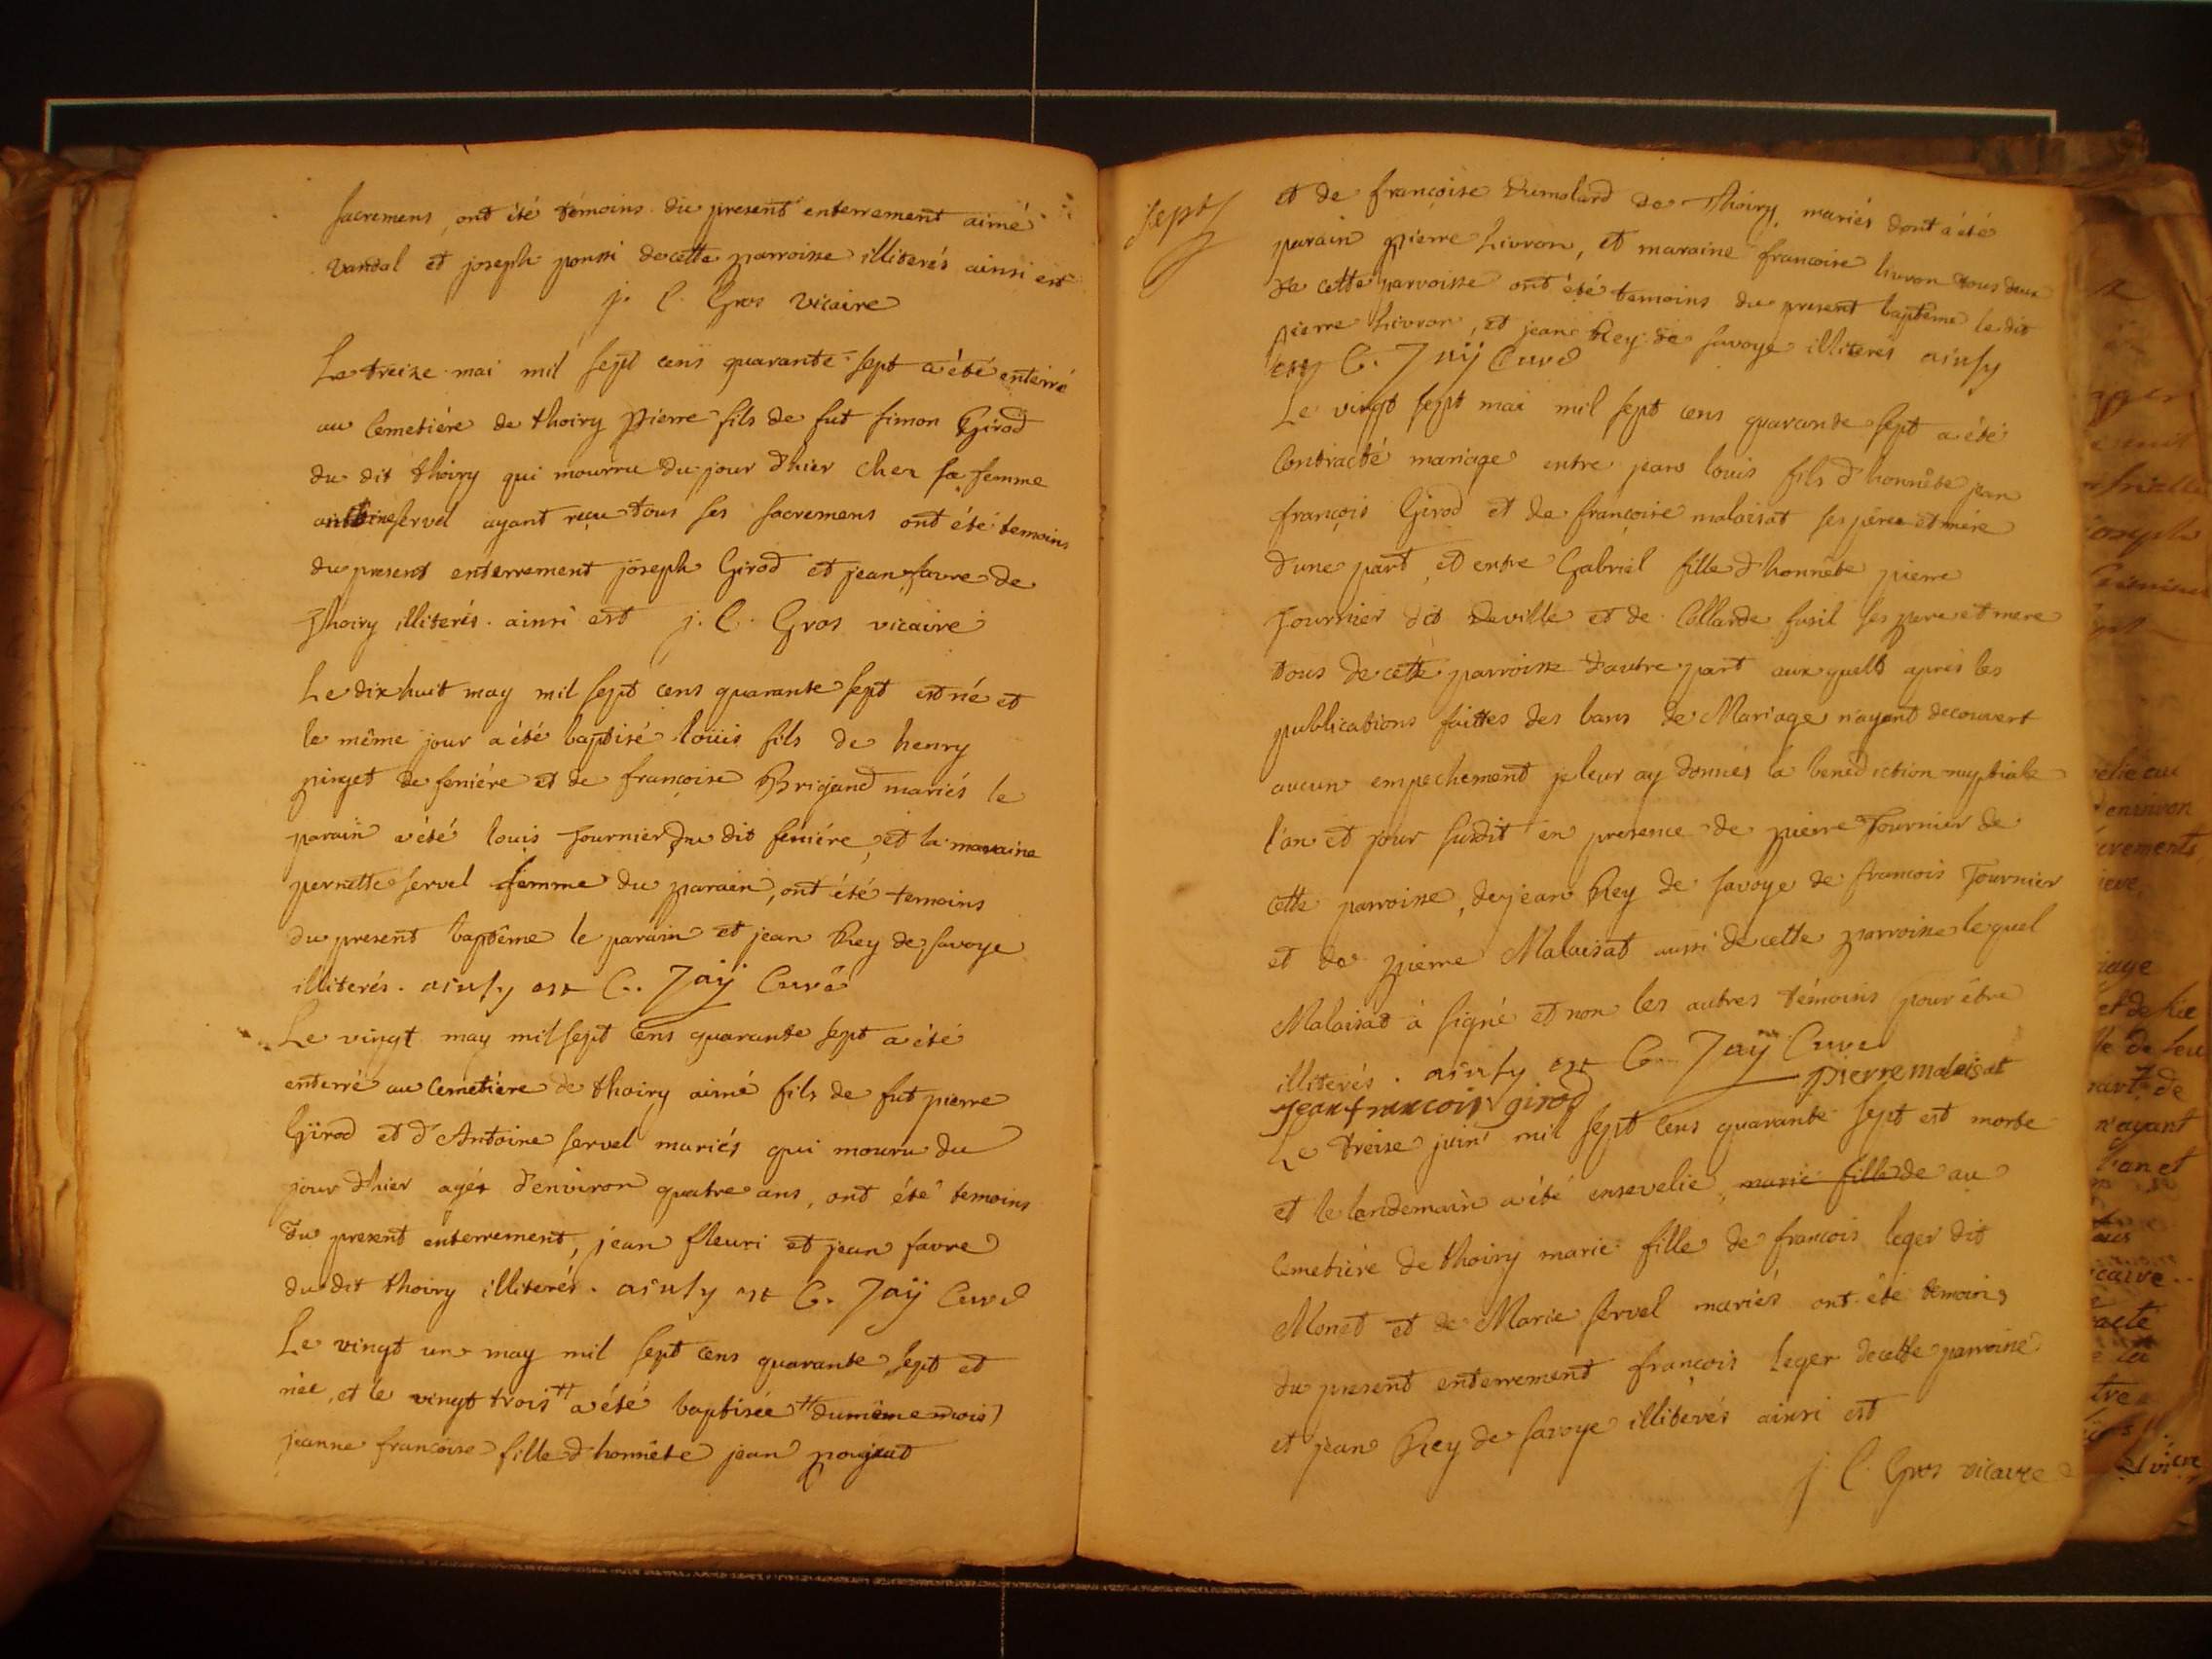 sacremens, ont été témoins du present enterrement aimé
vandal et joseph ponssi de cette parroisse illiterés ainsi est
j. C. Gros vicaire
Le treize mai mil sept cens quarante sept a été enterré
au Cemetiére de thoiry pierre fils de fut simon Girod
du dit thoiry qui mourru du jour d'hier chez sa femme
antoine servel ayant reçu tous ses sacremens ont été temoins
du present enterrement joseph Girod et jean favre de
Thoiry illiterés. ainsi est j. C. Gros vicaire
Le dix huit may mil sept cens quarante sept est né et
le même jour a été baptisé loüis fils de henry
pinget de feniére et de françoise Brigand mariés le
parain a été louis fournier du dit feniére, et la maraine
pernette servel femme du parain, ont été temoins
du present baptême le parain et jean Rey de savoye
illiterés. ainsy est C. Jaÿ Curé
Le vingt may mil sept cens quarante sept a été
enterré au Cemetiére de thoiry aimé fils de fut pierre
Girod et d'Antoine servel mariés qui mouru du
jour d'hier agés d'environ quatre ans, ont été temoins
du present enterrement, jean fleuri et jean favre
du dit thoiry illiterés. ainsy est C. Jaÿ Curé
Le vingt un may mil sept cens quarante sept et
née, et le vingt trois # a été baptisée # du même mois)
jeanne françoise fille d'honnête jean poujeat
sept
et de françoise Dumolard de Thoiry mariés dont a été
parain pierre Livron, et maraine francoise livron tous deux
de cette parroisse ont été temoins du present baptême le dit
pierre Livron, et jean Rey de savoye illiterés ainsy
est C. Jaÿ Curé
Le vingt sept mai mil sept cens quarante sept a été
Contracté mariage entre jean louis fils d'honnête jean
françois Girod et de françoise malaisat ses pére et mére
d'une part, et entre Gabriel fille d'honnête pierre
fournier dit deville et de Collarde fusil ses pere et mere
tous de cette parroisse d'autre part aux quells aprés les
publications faittes des bans de Mariage n'ayant decouvert
aucun empechement je leur ay donnés la benédiction nuptiale
l'an et jour susdit en presence de pierre Fournier de
cette parroisse, de jean Rey de savoye de francois Fournier
et de pierre Malaisat aussi de cette parroisse le quel
Malaisat à signé et non les autres témoins pour être
illiterés. ainsy est C. Jaÿ Curé
pierre malaisat
jean francois girod
Le treise juin mil sept cens quarante sept est morte
et le landemain a été ensevelie, marie fille de au
Cemetiére de thoiry marie fille de francois leger dit
Monet et de Marie servel mariés ont été temoins
du present enterrement françois Leger de cette parroisse
et jean Rey de savoye illiterés ainsi est
j. C. Gros vicaire